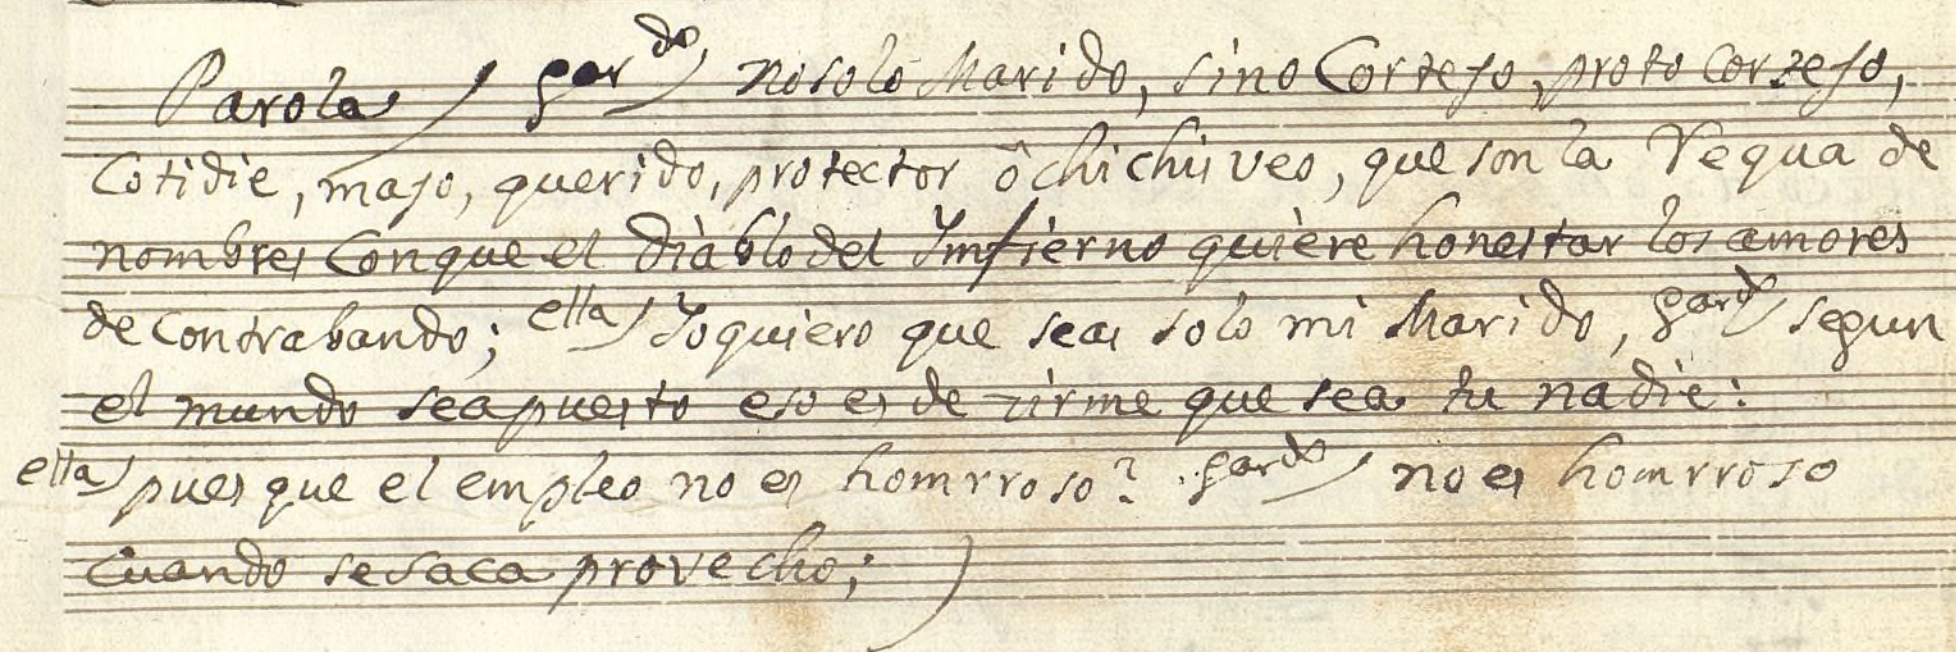 Parola / Gar.do no solo Marido, sino Cortejo, proto Cortejo,
Cotidie, majo, querido, protector ô chichisveo, que son la Requa de
nombres Con que el Diablo del Ymfierno quiere honestar los amores
de Contrabando; ella / Yo quiero que seas solo mi Marido, Gar.do segun
el mundo sea puesto eso es de zirme que sea tu nadie:
ella / pues que el empleo no es homrroso? Gar.do / no es homrroso
Cuando se saca provecho;